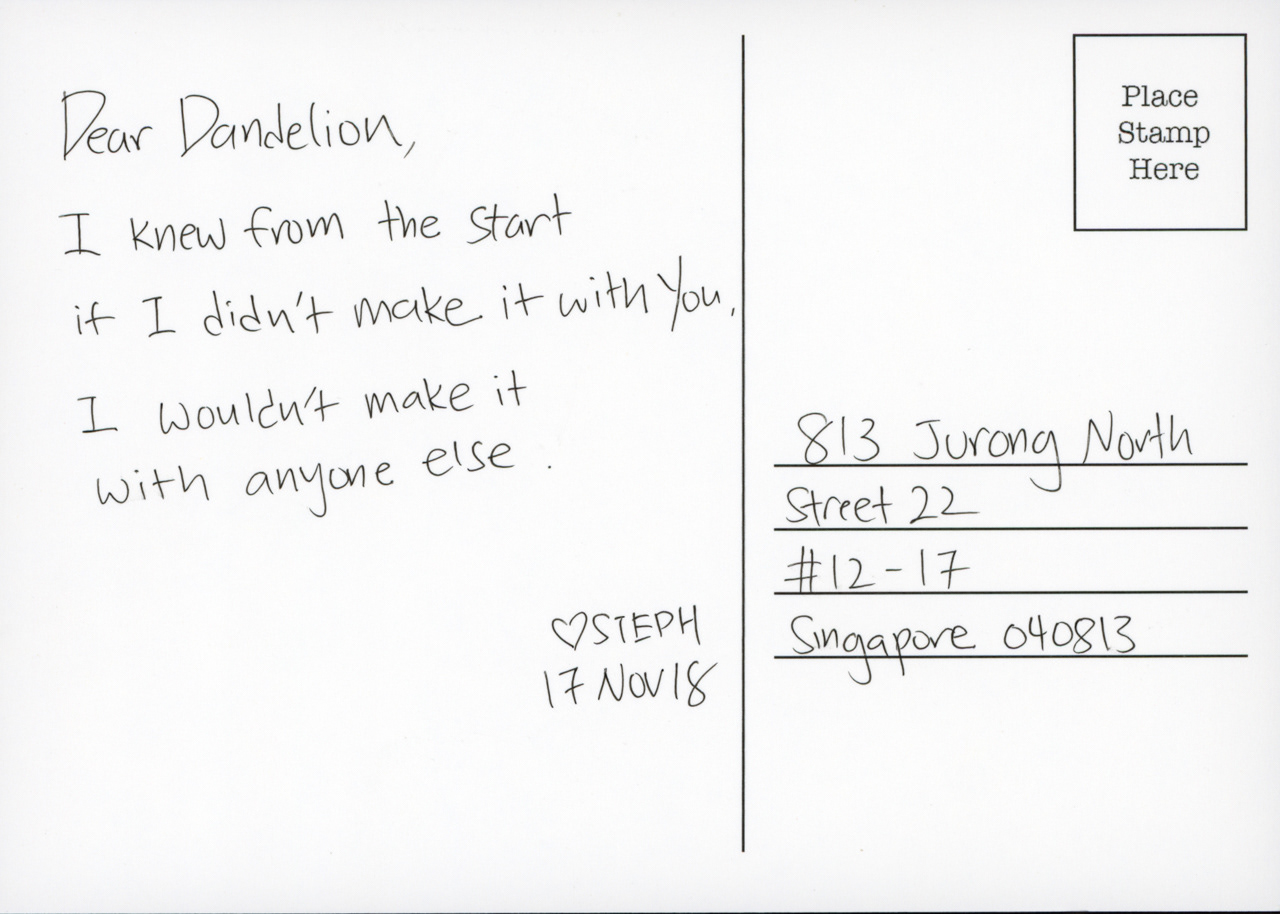 Dear Dandelion,
I knew from the start
if I didn't make it with you,
I wouldn't make it
with anyone else.
♡STEPH
17 NOV 18
Place
Stamp
Here
813 Jurong North
Street 22
#12-17
Singapore 040813